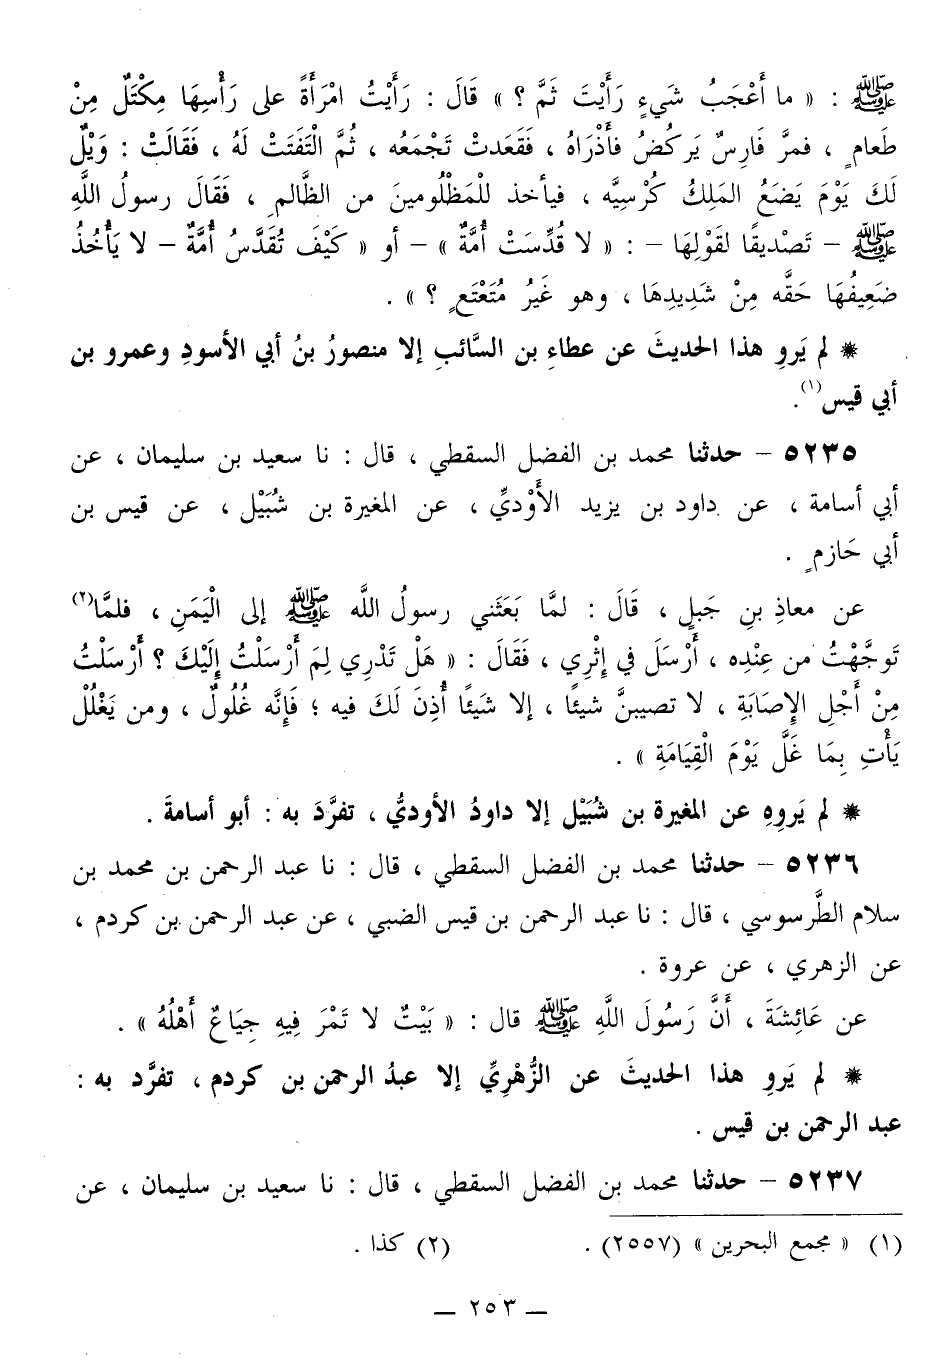 ﷺ : « ما أَعْجَبُ شَيءٍ رَأَيْتَ ثَمَّ ؟ » قَالَ : رَأَيْتُ امْرَأَةً على رَأْسِهَا مِكْتَلٌ مِنْ
طَعامٍ ، فمرَّ فَارِسٌ يَركُضُ فأَذْرَاهُ ، فَقَعَدتْ تَجْمَعُه ، ثُمَّ الْتَفَتَتْ لَهُ ، فَقَالَتْ : وَيْلٌ
لَكَ يَوْمَ يَضَعُ المَلِكُ كُرْسِيَّه ، فيأخذ للْمَظْلُومينَ من الظَّالمِ ، فَقَالَ رسولُ اللَّهِ
ﷺ – تَصْديقًا لقَوْلِهَا – : « لا قُدِّسَتْ أُمَّةٌ » – أو « كَيْفَ تُقَدَّسُ أُمَّةٌ – لا يَأْخُذُ
ضَعِيفُهَا حَقَّه مِنْ شَدِيدِهَا ، وهو غَيرُ مُتَعْتَعٍ ؟ » .
* لم يَروِ هذا الحديثَ عن عطاءِ بن السَّائبِ إلا منصورُ بنُ أبي الأسودِ وعمرو بن
أبي قيس(١).
٥٢٣٥ – حدثنا محمد بن الفضل السقطي ، قال : نا سعيد بن سليمان ، عن
أبي أسامة ، عن داود بن يزيد الأَوْديِّ ، عن المغيرة بن شُبَيْل ، عن قيس بن
أبي حَازمٍ .
عن معاذِ بنِ جَبلٍ ، قَالَ : لمَّا بَعَثَني رسولُ اللَّه ﷺ إلى الْيَمَنِ ، فلمَّا(٢)
تَوجَّهْتُ من عِنْدِه ، أَرْسَلَ في إِثْرِي ، فَقَالَ : « هَلْ تَدْرِي لِمَ أَرْسَلْتُ إِلَيْكَ ؟ أَرْسَلْتُ
مِنْ أَجْلِ الإِصَابَةِ ، لا تصيبنَّ شيئًا ، إلا شَيئًا أُذِنَ لَكَ فيه ؛ فَإِنَّه غُلُولٌ ، ومن يَغْلُلْ
يَأْتِ بِمَا غَلَّ يَوْمَ الْقِيَامَةِ » .
* لم يَروِهِ عن المغيرة بن شُبَيْل إلا داودُ الأوديُّ ، تفرَّدَ به : أبو أسامةَ .
٥٢٣٦ – حدثنا محمد بن الفضل السقطي ، قال : نا عبد الرحمن بن محمد بن
سلام الطَّرسوسي ، قال : نا عبد الرحمن بن قيس الضبي ، عن عبد الرحمن بن كردم ،
عن الزهري ، عن عروة .
عن عَائِشَةَ ، أَنَّ رَسُولَ اللَّهِ ﷺ قال : « بَيْتٌ لا تَمْرَ فِيهِ جِيَاعٌ أَهْلُهُ » .
* لم يَروِ هذا الحديثَ عن الزُّهْرِيِّ إلا عبدُ الرحمن بن كردم ، تفرَّد به :
عبد الرحمن بن قيس .
٥٢٣٧ – حدثنا محمد بن الفضل السقطي ، قال : نا سعيد بن سليمان ، عن
(١) « مجمع البحرين » (٢٥٥٧) .
(٢) كذا .
— ٢٥٣ —